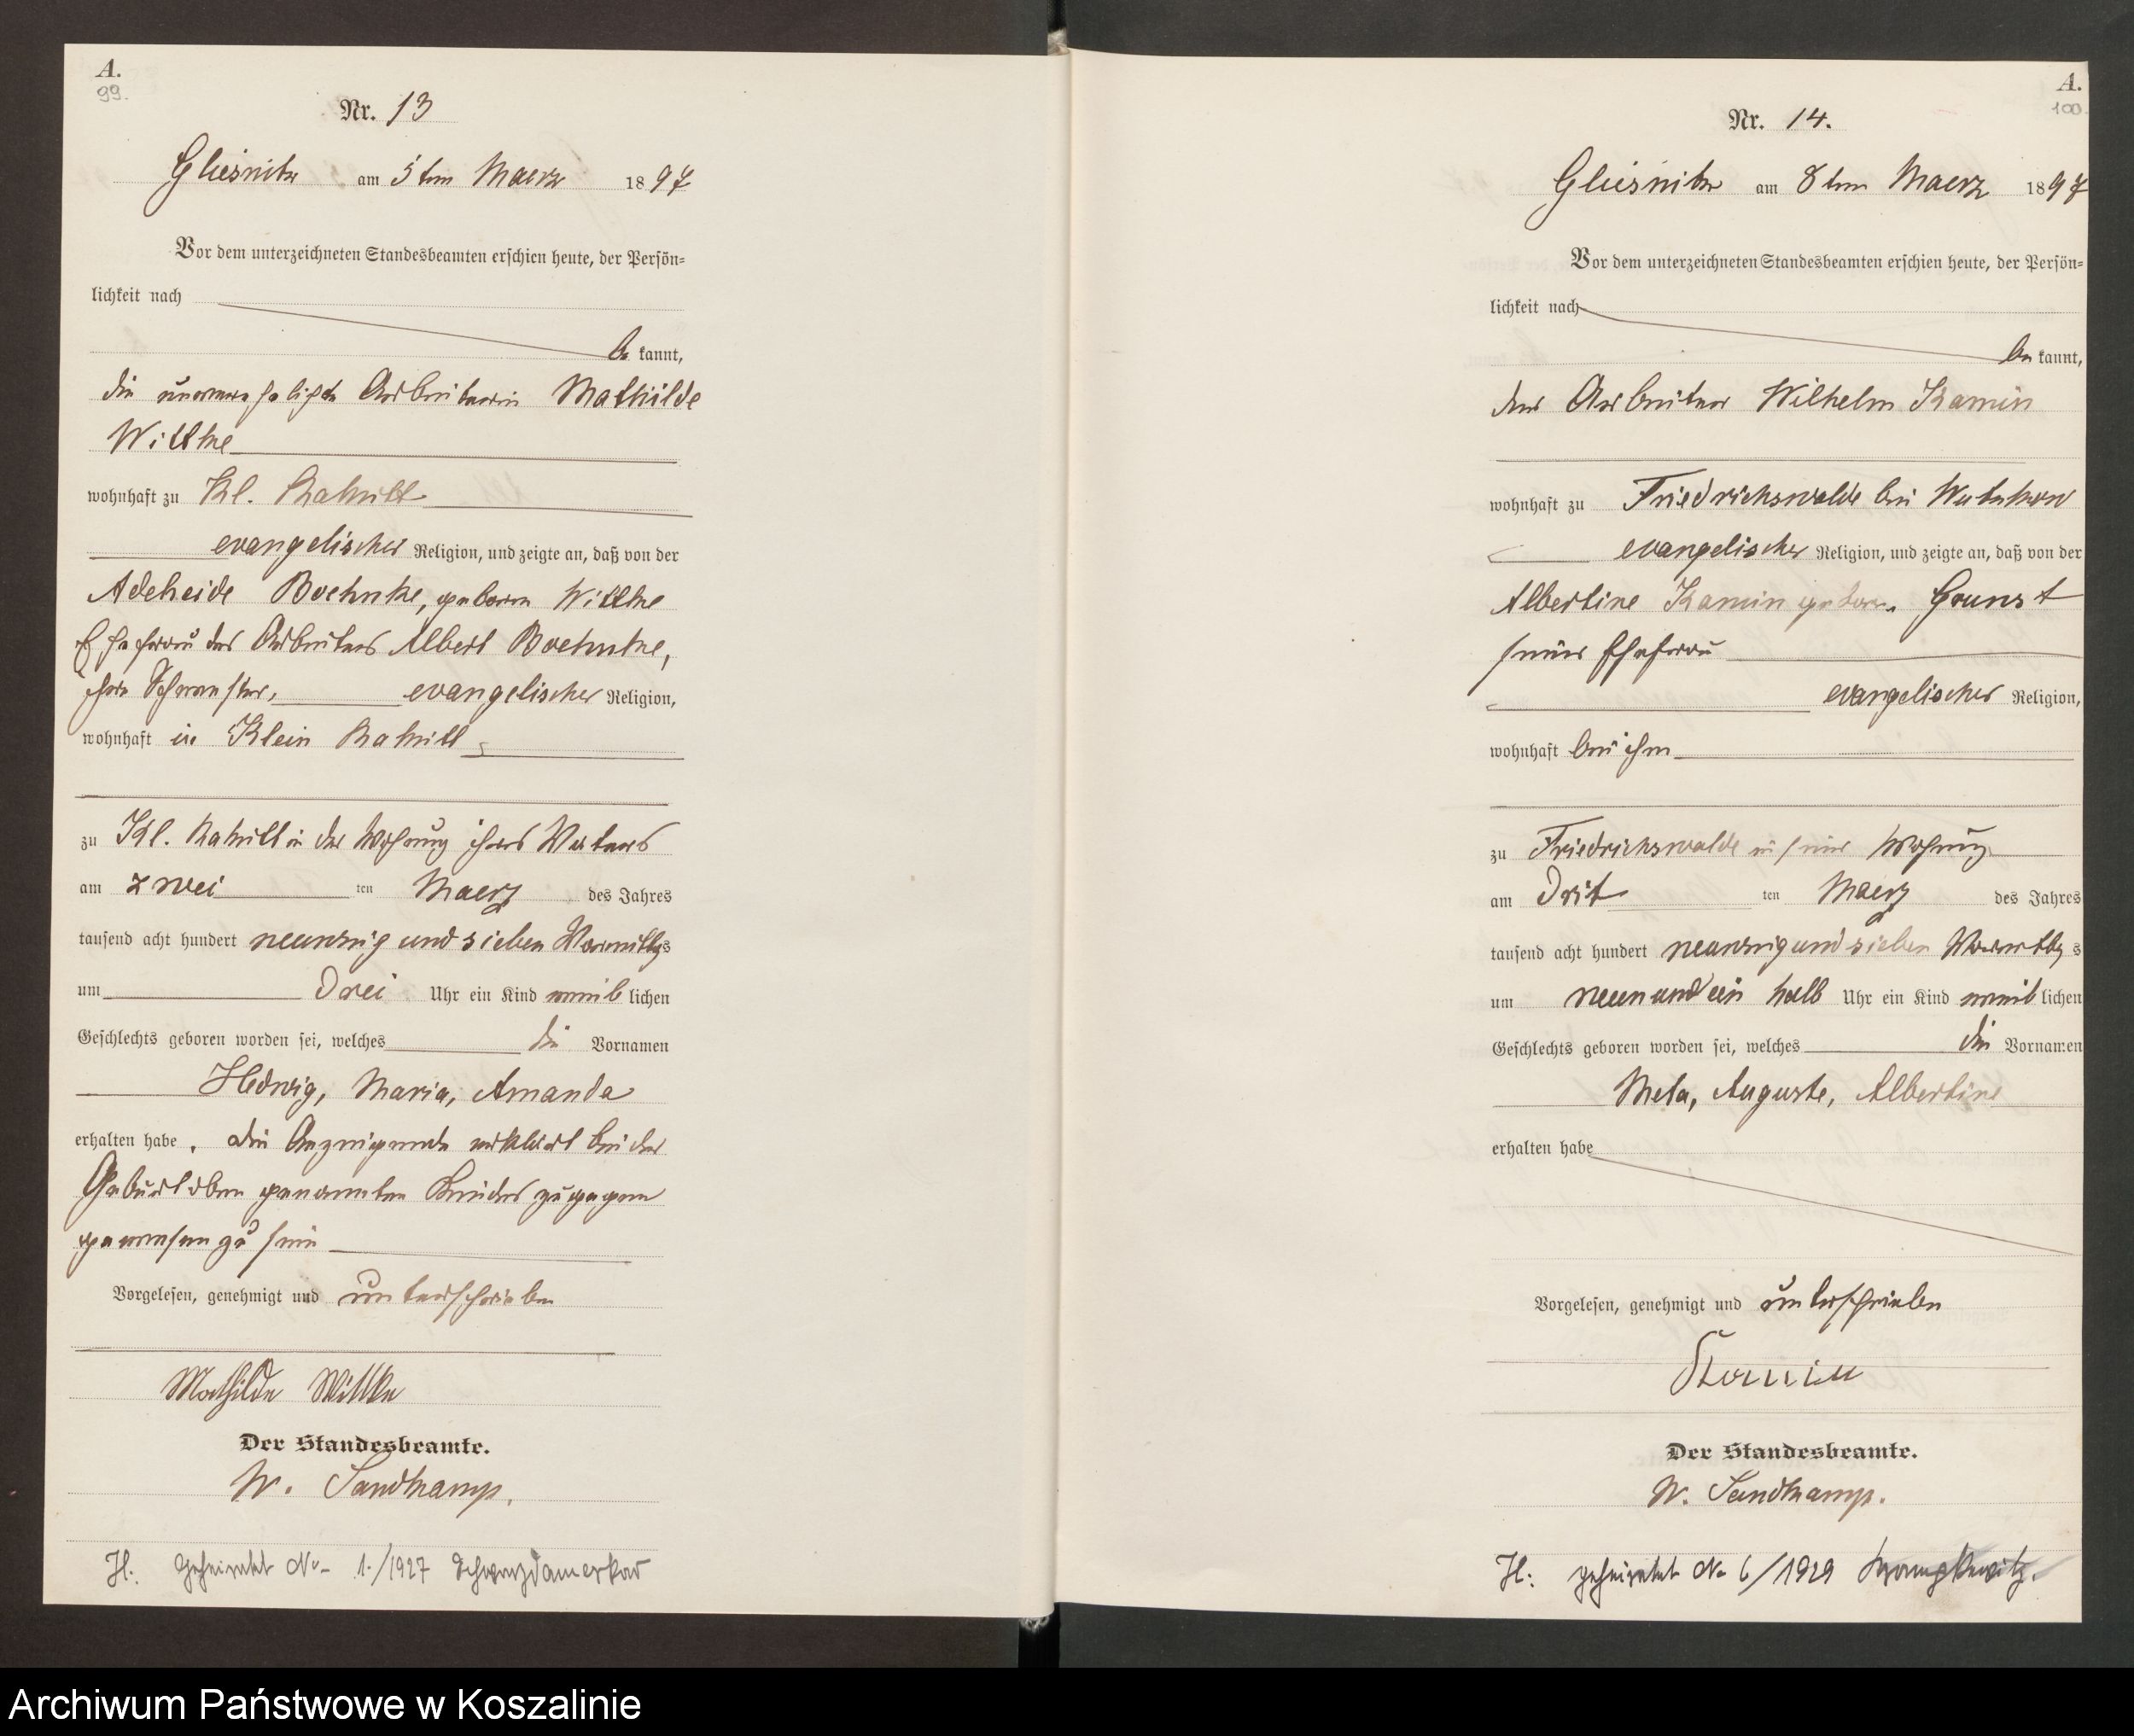 A.
99.
Nr. 13
Gliesnitz am 5ten Maerz 1897
Vor dem unterzeichneten Standesbeamten erschien heute, der Persön=
lichkeit nach
be kannt,
die unverehelichte Arbeiterin Mathilde
Wittke
wohnhaft zu Kl. Rakitt
evangelischer Religion, und zeigte an, daß von der
Adeheide Boehnke, geboren Wittke
Ehefrau des Arbeiters Albert Boehnke,
ihrer Schwester, evangelischer Religion,
wohnhaft in Klein Rakitt
zu Kl. Rakitt in der Wohnung ihres Vaters
am zwei ten Maerz des Jahres
tausend acht hundert neunzig und sieben Vormittgs
um Drei Uhr ein Kind weib lichen
Geschlechts geboren worden sei, welches die Vornamen
Hedwig, Maria, Amanda
erhalten habe. Die Anzeigende erklärt bei der
Geburt oben genannten Kindes zugegen
gewesen zu sein
Vorgelesen, genehmigt und unterschrieben
Mathilde Wittke
Der Standesbeamte.
W. Sandkamp.
H: geheiratet No 1./1927 Schwarzdamerkow
A.
100
Nr. 14.
Gliesnitz am 8ten Maerz 1897
Vor dem unterzeichneten Standesbeamten erschien heute, der Persön=
lichkeit nach
be kannt,
der Arbeiter Wilhelm Kamin
wohnhaft zu Friedrichswalde bei Wutzkow
evangelischer Religion, und zeigte an, daß von der
Albertine Kamin gebor. Grunst
seiner Ehefrau
evangelischer Religion,
wohnhaft bei ihm
zu Friedrichswalde in seiner Wohnung
am Drit ten Maerz des Jahres
tausend acht hundert neunzig und sieben Vormttg s
um neun und ein halb Uhr ein Kind weib lichen
Geschlechts geboren worden sei, welches die Vornamen
Meta, Auguste, Albertine
erhalten habe
Vorgelesen, genehmigt und unterschrieben
Kamin
Der Standesbeamte.
W. Sandkamp.
H: geheiratet No 6/1929
Archiwum Państwowe w Koszalinie